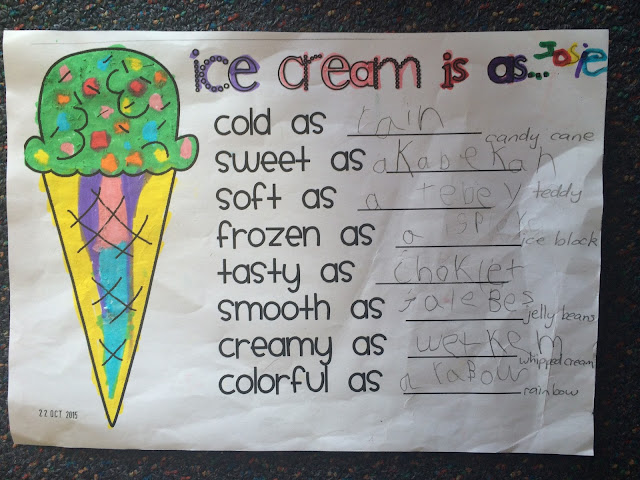 ice cream is as... Josie
cold as rain
candy cane
sweet as a Kabe Kah
soft as a tebey teddy
frozen as a
ice block
tasty as Choklet
smooth as JaleBes
jelly beans
creamy as wetkem
whipped cream
colorful as a raBow
rainbow
22 OCT 2015